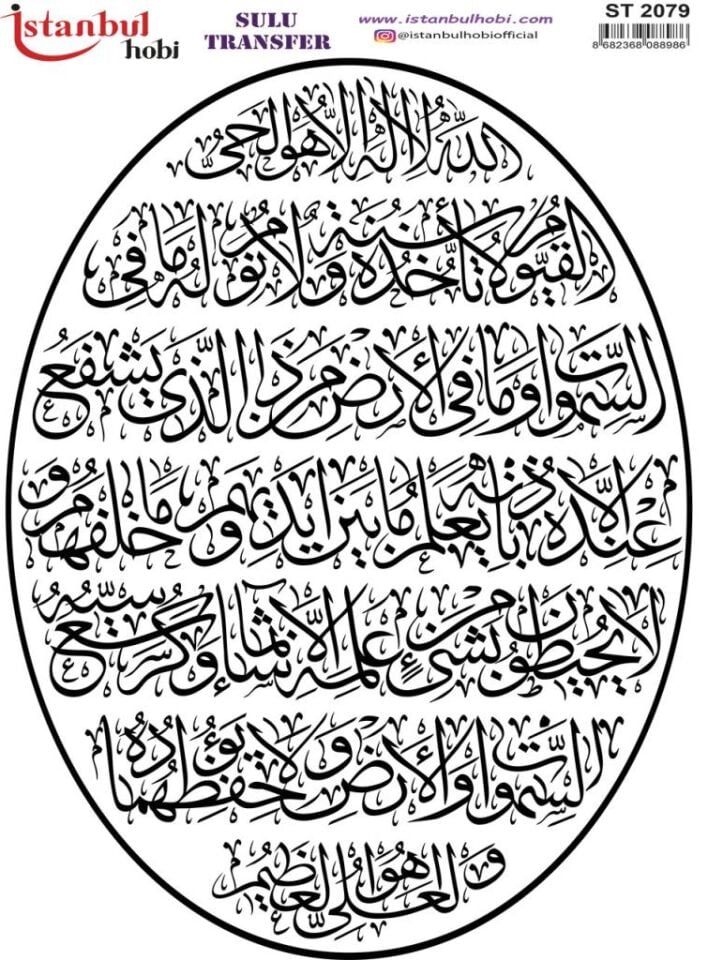 istanbul hobi
SULU TRANSFER
www.istanbulhobi.com
@istanbulhobiofficial
ST 2079
8 682368 088986
الله لا اله الا هو الحي
القيوم لا تأخذه سنة ولا نوم له ما في
السموات وما في الأرض من ذا الذي يشفع
عنده الا باذنه يعلم ما بين ايديهم وما خلفهم و
لا يحيطون بشئ من علمه الا بما شاء وسع كرسيه
السموات والأرض ولا يؤده حفظهما
وهو العلي العظيم